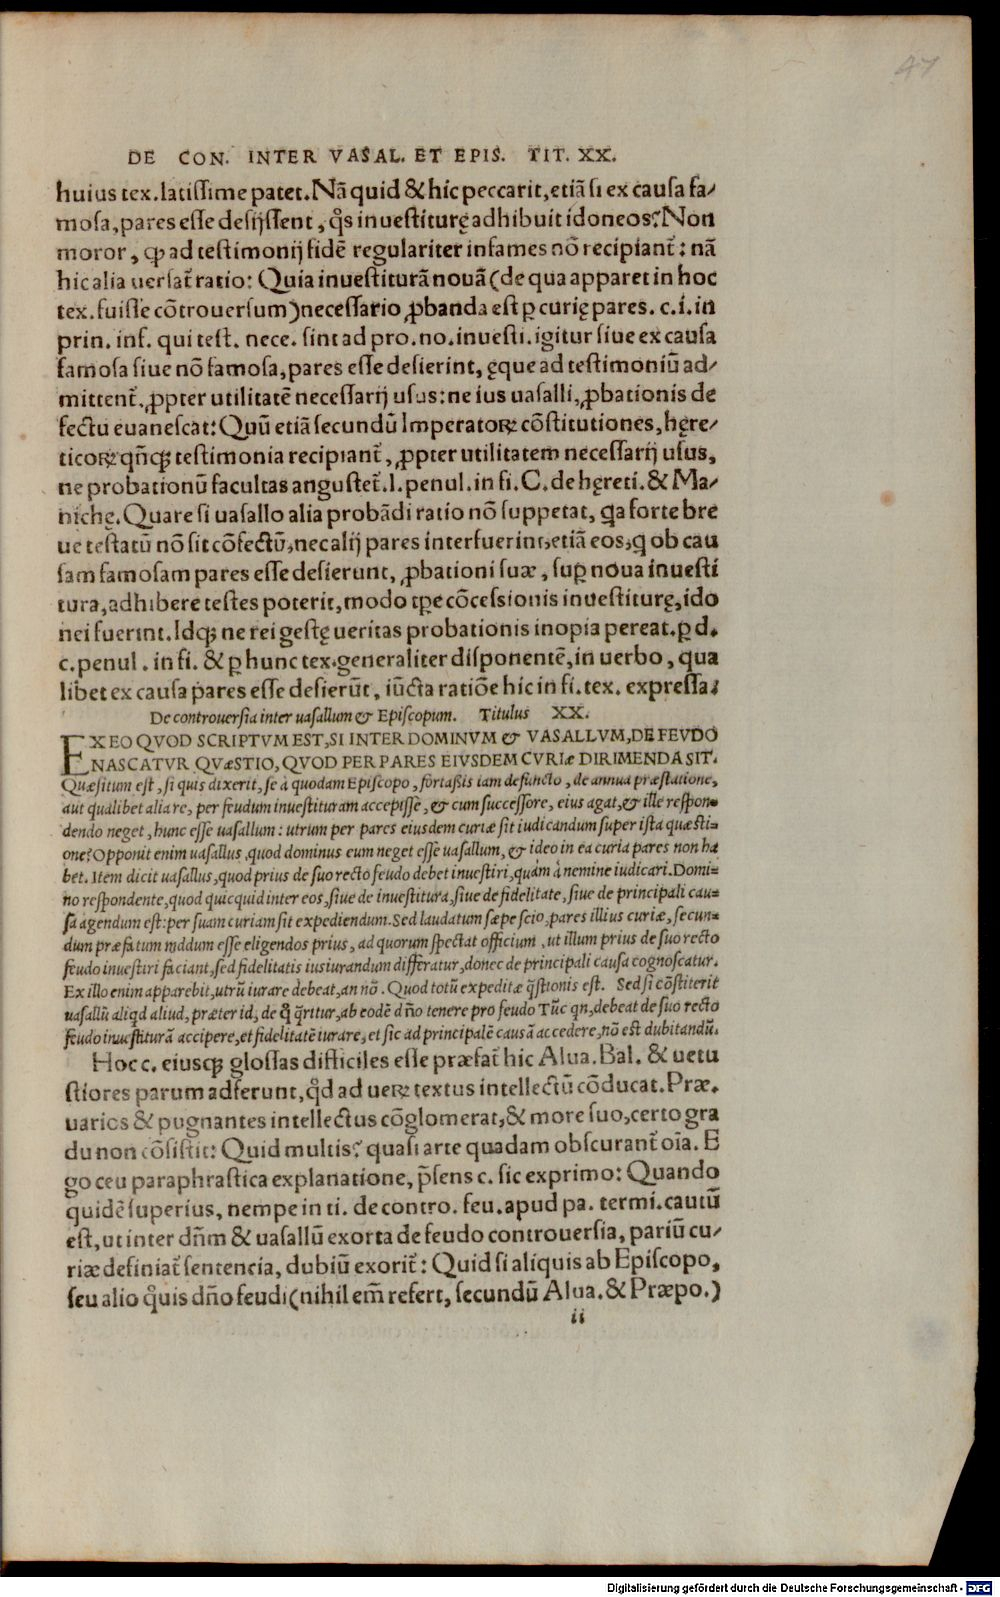 47
DE CON. INTER VASAL. ET EPIS. TIT. XX.
huius tex. latissime patet. Nā quid & hic peccarit, etiā si ex causa fa/
mosa, pares esse desijssent, q̊s inuestiturę adhibuit idoneos? Non
moror, ꝙ ad testimonij fidē regulariter infames nō recipiant̄: nā
hic alia uersat̄ ratio: Quia inuestiturā nouā (de qua apparet in hoc
tex. fuisse cōtrouersum) necessario ꝓbanda est ꝑ curię pares. c. i. in
prin. inf. qui test. nece. sint ad pro. no. inuesti. igitur siue ex causa
famosa siue nō famosa, pares esse desierint, ęque ad testimoniū ad/
mittent̄, ꝓpter utilitatē necessarij usus: ne ius uasalli, ꝓbationis de
fectu euanescat: Quū etiā secundū Imperatoꝝ cōstitutiones, hęre/
ticoꝝ qn̄cꝗ testimonia recipiant̄, ꝓpter utilitatem necessarij usus,
ne probationū facultas angustet̄. l. penul. in fi. C. de hęreti. & Ma/
nichę. Quare si uasallo alia probādi ratio nō suppetat, q̇a forte bre
ue testatū nō sit cōfectū, nec alij pares interfuerint, etiā eos, q̇ ob cau
sam famosam pares esse desierunt, ꝓbationi suæ, suꝑ noua inuesti
tura, adhibere testes poterit, modo tp̄e cōcessionis inuestiturę, ido
nei fuerint. Idqꝫ ne rei gestę ueritas probationis inopia pereat. ꝑ d.
c. penul. in fi. & ꝑ hunc tex. generaliter disponentē, in uerbo, qua
libet ex causa pares esse desierūt, iūcta ratiōe hic in fi. tex. expressa.
De controuersia inter uasallum & Episcopum. Titulus XX.
EX EO QVOD SCRIPTVM EST, SI INTER DOMINVM & VASALLVM, DE FEVDO
NASCATVR QVÆSTIO, QVOD PER PARES EIVSDEM CVRIÆ DIRIMENDA SIT.
Quæsitum est, si quis dixerit, se à quodam Episcopo, fortaßis iam defuncto, de annua præstatione,
aut qualibet alia re, per feudum inuestituram accepisse, & cum successore, eius agat, & ille respon=
dendo neget, hunc esse uasallum: utrum per pares eiusdem curiæ sit iudicandum super ista quæsti=
one? Opponit enim uasallus, quod dominus eum neget esse uasallum, & ideo in ea curia pares non ha
bet. Item dicit uasallus, quod prius de suo recto feudo debet inuestiri, quàm à nemine iudicari. Domi=
no respondente, quod quicquid inter eos, siue de inuestitura, siue de fidelitate, siue de principali cau=
sa agendum est: per suam curiam sit expediendum. Sed laudatum sæpe scio, pares illius curiæ, secun=
dum præfatum modum esse eligendos prius, ad quorum spectat officium, ut illum prius de suo recto
feudo inuestiri faciant, sed fidelitatis iusiurandum differatur, donec de principali causa cognoscatur.
Ex illo enim apparebit, utrū iurare debeat, an nō. Quod totū expeditæ q̄stionis est. Sed si cōstiterit
uasallū aliqd aliud, præter id, de q̊ q̄ritur, ab eodē dn̄o tenere pro feudo Tūc qn, debeat de suo recto
feudo inuestiturā accipere, et fidelitatē iurare, et sic ad principalē causā accedere, nō est dubitandū.
Hoc c. eiusqꝫ glossas difficiles esse præfat̄ hic Alua. Bal. & uetu
stiores parum adferunt, q̊d ad ueꝝ textus intellectū cōducat. Præ.
uarios & pugnantes intellectus cōglomerat, & more suo, certo gra
du non cōsistit: Quid multis? quasi arte quadam obscurant̄ oīa. E
go ceu paraphrastica explanatione, p̄sens c. sic exprimo: Quando
quidē superius, nempe in ti. de contro. feu. apud pa. termi. cautū
est, ut inter dn̄m & uasallū exorta de feudo controuersia, pariū cu/
riæ definiat̄ sentencia, dubiū exorit̄: Quid si aliquis ab Episcopo,
seu alio q̊uis dn̄o feudi (nihil em̄ refert, secundū Alua. & Præpo.)
ii
Digitalisierung gefördert durch die Deutsche Forschungsgemeinschaft - DFG